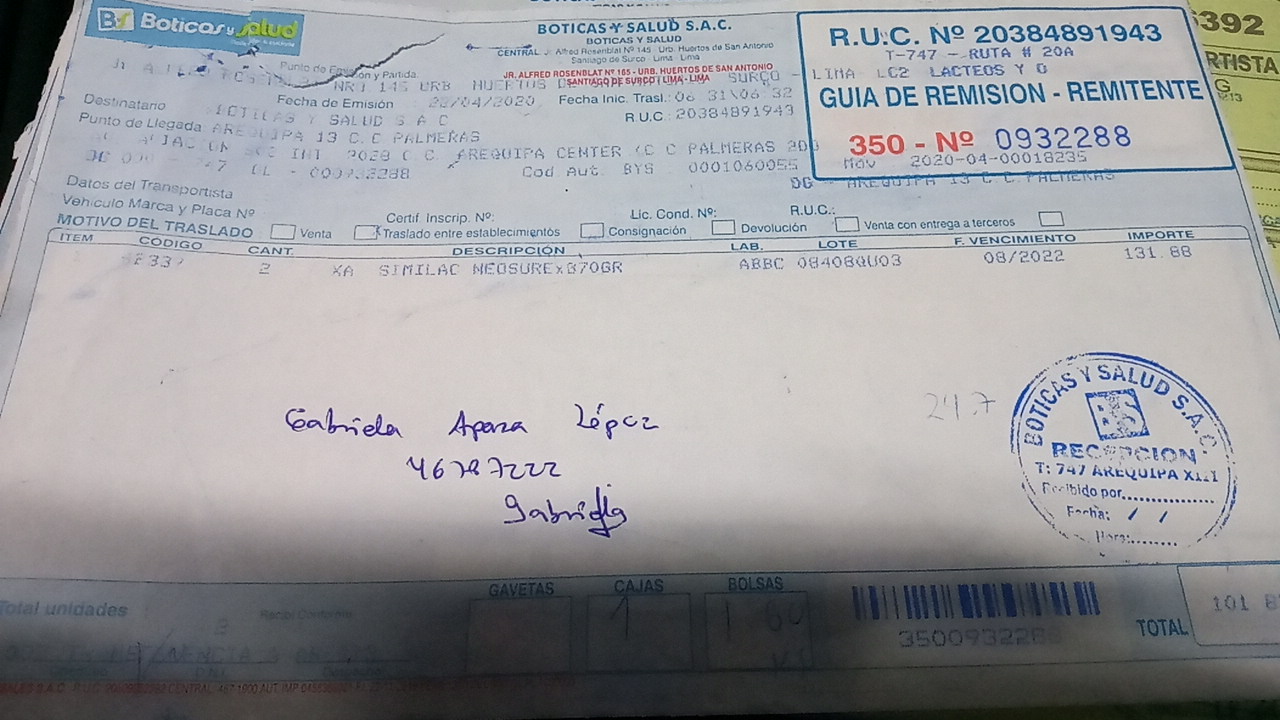 BS Boticas y Salud
BOTICAS Y SALUD S.A.C.
BOTICAS Y SALUD
CENTRAL: J. Alfred Rosenblat Nº 145 - Urb. Huertos de San Antonio
Santiago de Surco - Lima - Lima
JR. ALFRED ROSENBLAT Nº 165 - URB. HUERTOS DE SAN ANTONIO
SANTIAGO DE SURCO / LIMA - LIMA
R.U.C. Nº 20384891943
T-747 - RUTA # 20A
LIMA LC2 LACTEOS Y O
GUIA DE REMISION - REMITENTE
350 - Nº 0932288
Mov 2020-04-00018235
DG - AREQUIPA 13 C C PALMERAS
392
Punto de Emisión y Partida
NRO 145 URB HUERTOS SURCO -
Fecha de Emisión 28/04/2020 Fecha Inic. Trasl.: 06 31\06 32
Destinatario BOTICAS Y SALUD S A C R.U.C: 20384891943
Punto de Llegada: AREQUIPA 13 C.C PALMERAS
INT 2028 C C AREQUIPA CENTER (C C PALMERAS
747 OL - 000932288 Cod Aut. BYS 0001060055
Datos del Transportista
Vehiculo Marca y Placa Nº Certif. Inscrip. Nº: Lic. Cond. Nº: R.U.C.:
MOTIVO DEL TRASLADO Venta Traslado entre establecimientos Consignación Devolución Venta con entrega a terceros
ITEM CÓDIGO CANT. DESCRIPCIÓN LAB. LOTE F. VENCIMIENTO IMPORTE
2 XA SIMILAC NEOSUREx370GR ABBC 08408QU03 08/2022 131.88
Gabriela Apaza López
46787222
Gabriela
247
BOTICAS Y SALUD S.A.C.
BS
RECEPCION
T: 747 AREQUIPA XIII
Recibido por...............
Fecha: / /
Hora:........
Total unidades Recibí Conforme GAVETAS CAJAS BOLSAS
1
TOTAL